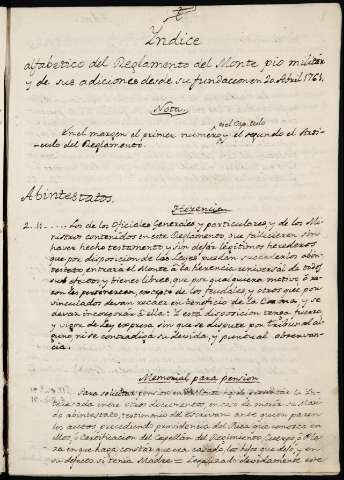 Indice
alfabetico del Reglamento del Monte pio militar
y de sus adiciones desde su fundacion en 20 Abril 1761.
Nota.
es el Capitulo
En el margen el primer numero, y el segundo el Arti-
culo del Reglamento.
Abintestatos.
Herencia
2..11...... Los de los Oficiales Generales y particulares, y de los Mi-
nistros contenidos en este Reglamento que fallecieren sin
haver hecho testamento, y sin dejar legitimos herederos
que por disposicion de las Leyes puedan succederlos abin-
testato, entrará el Monte á la herencia universal de todos
sus efectos y bienes libres, que por qualquiera motivo ó ra-
zon les pertenezcan, excepto de los feudales y otros que por
vinculados devan recaer en beneficio de la Corona, y se
devan incorporar á ella: I está disposicion tenga fuerza
y vigor de Ley expresa sin que se dispute por tribunal al-
guno, ni se contradiga su devida, y puntual observan-
cia.
Memorial para pension
Para solicitar pension en el Monte puede presentar la In-
teresada entre otros documentos, en caso de morir su Mari-
do abintestato, testimonio del Escrivano ante quien paren
los autos precediendo providencia del Juez que conozca en
ellos, ó Certificacion del Capellan del Regimiento, Cuerpo, ó Pla-
za en que haga constar que era casado, los hijos que dejó, y en
su defecto si tenia Madre = Legalizado devidamente este